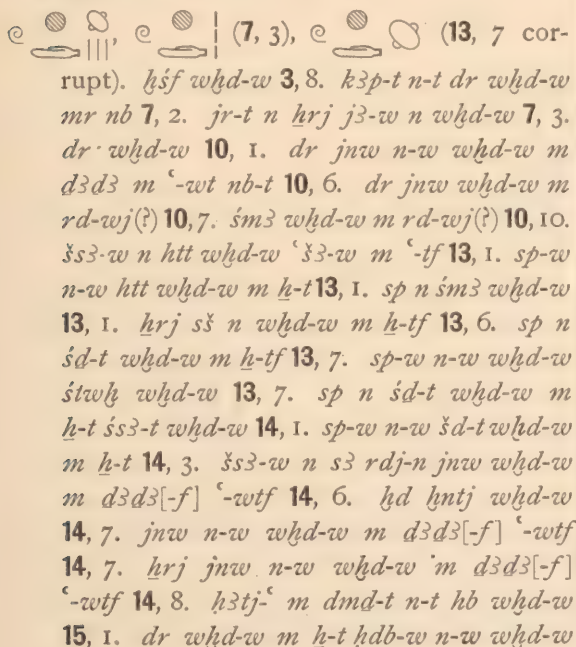 (7, 3), (13, 7 cor-
rupt). ḫśf wḫd-w 3, 8. k3p-t n-t dr wḫd-w
mr nb 7, 2. jr-t n ẖrj j3-w n wḫd-w 7, 3.
dr wḫd-w 10, 1. dr jnw n-w wḫd-w m
d3d3 m ʿ-wt nb-t 10, 6. dr jnw wḫd-w m
rd-wj(?) 10, 7. śm3 wḫd-w m rd-wj(?) 10, 10.
šs3-w n htt wḫd-w ʿš3-w m ʿ-tf 13, 1. sp-w
n-w htt wḫd-w m ẖ-t 13, 1. sp n śm3 wḫd-w
13, 1. ẖrj sš n wḫd-w m ẖ-tf 13, 6. sp n
śd-t wḫd-w m ẖ-tf 13, 7. sp-w n-w wḫd-w
śtwḫ wḫd-w 13, 7. sp n śd-t wḫd-w m
ẖ-t śs3-t wḫd-w 14, 1. sp-w n-w šd-t wḫd-w
m ẖ-t 14, 3. šs3-w n s3 rdj-n jnw wḫd-w
m d3d3[-f] ʿ-wtf 14, 6. ḥd ḫntj wḫd-w
14, 7. jnw n-w wḫd-w m d3d3[-f] ʿ-wtf
14, 7. ẖrj jnw n-w wḫd-w m d3d3[-f]
ʿ-wtf 14, 8. ḥ3tj-ʿ m dmd-t n-t hb wḫd-w
15, 1. dr wḫd-w m ẖ-t ḫdb-w n-w wḫd-w